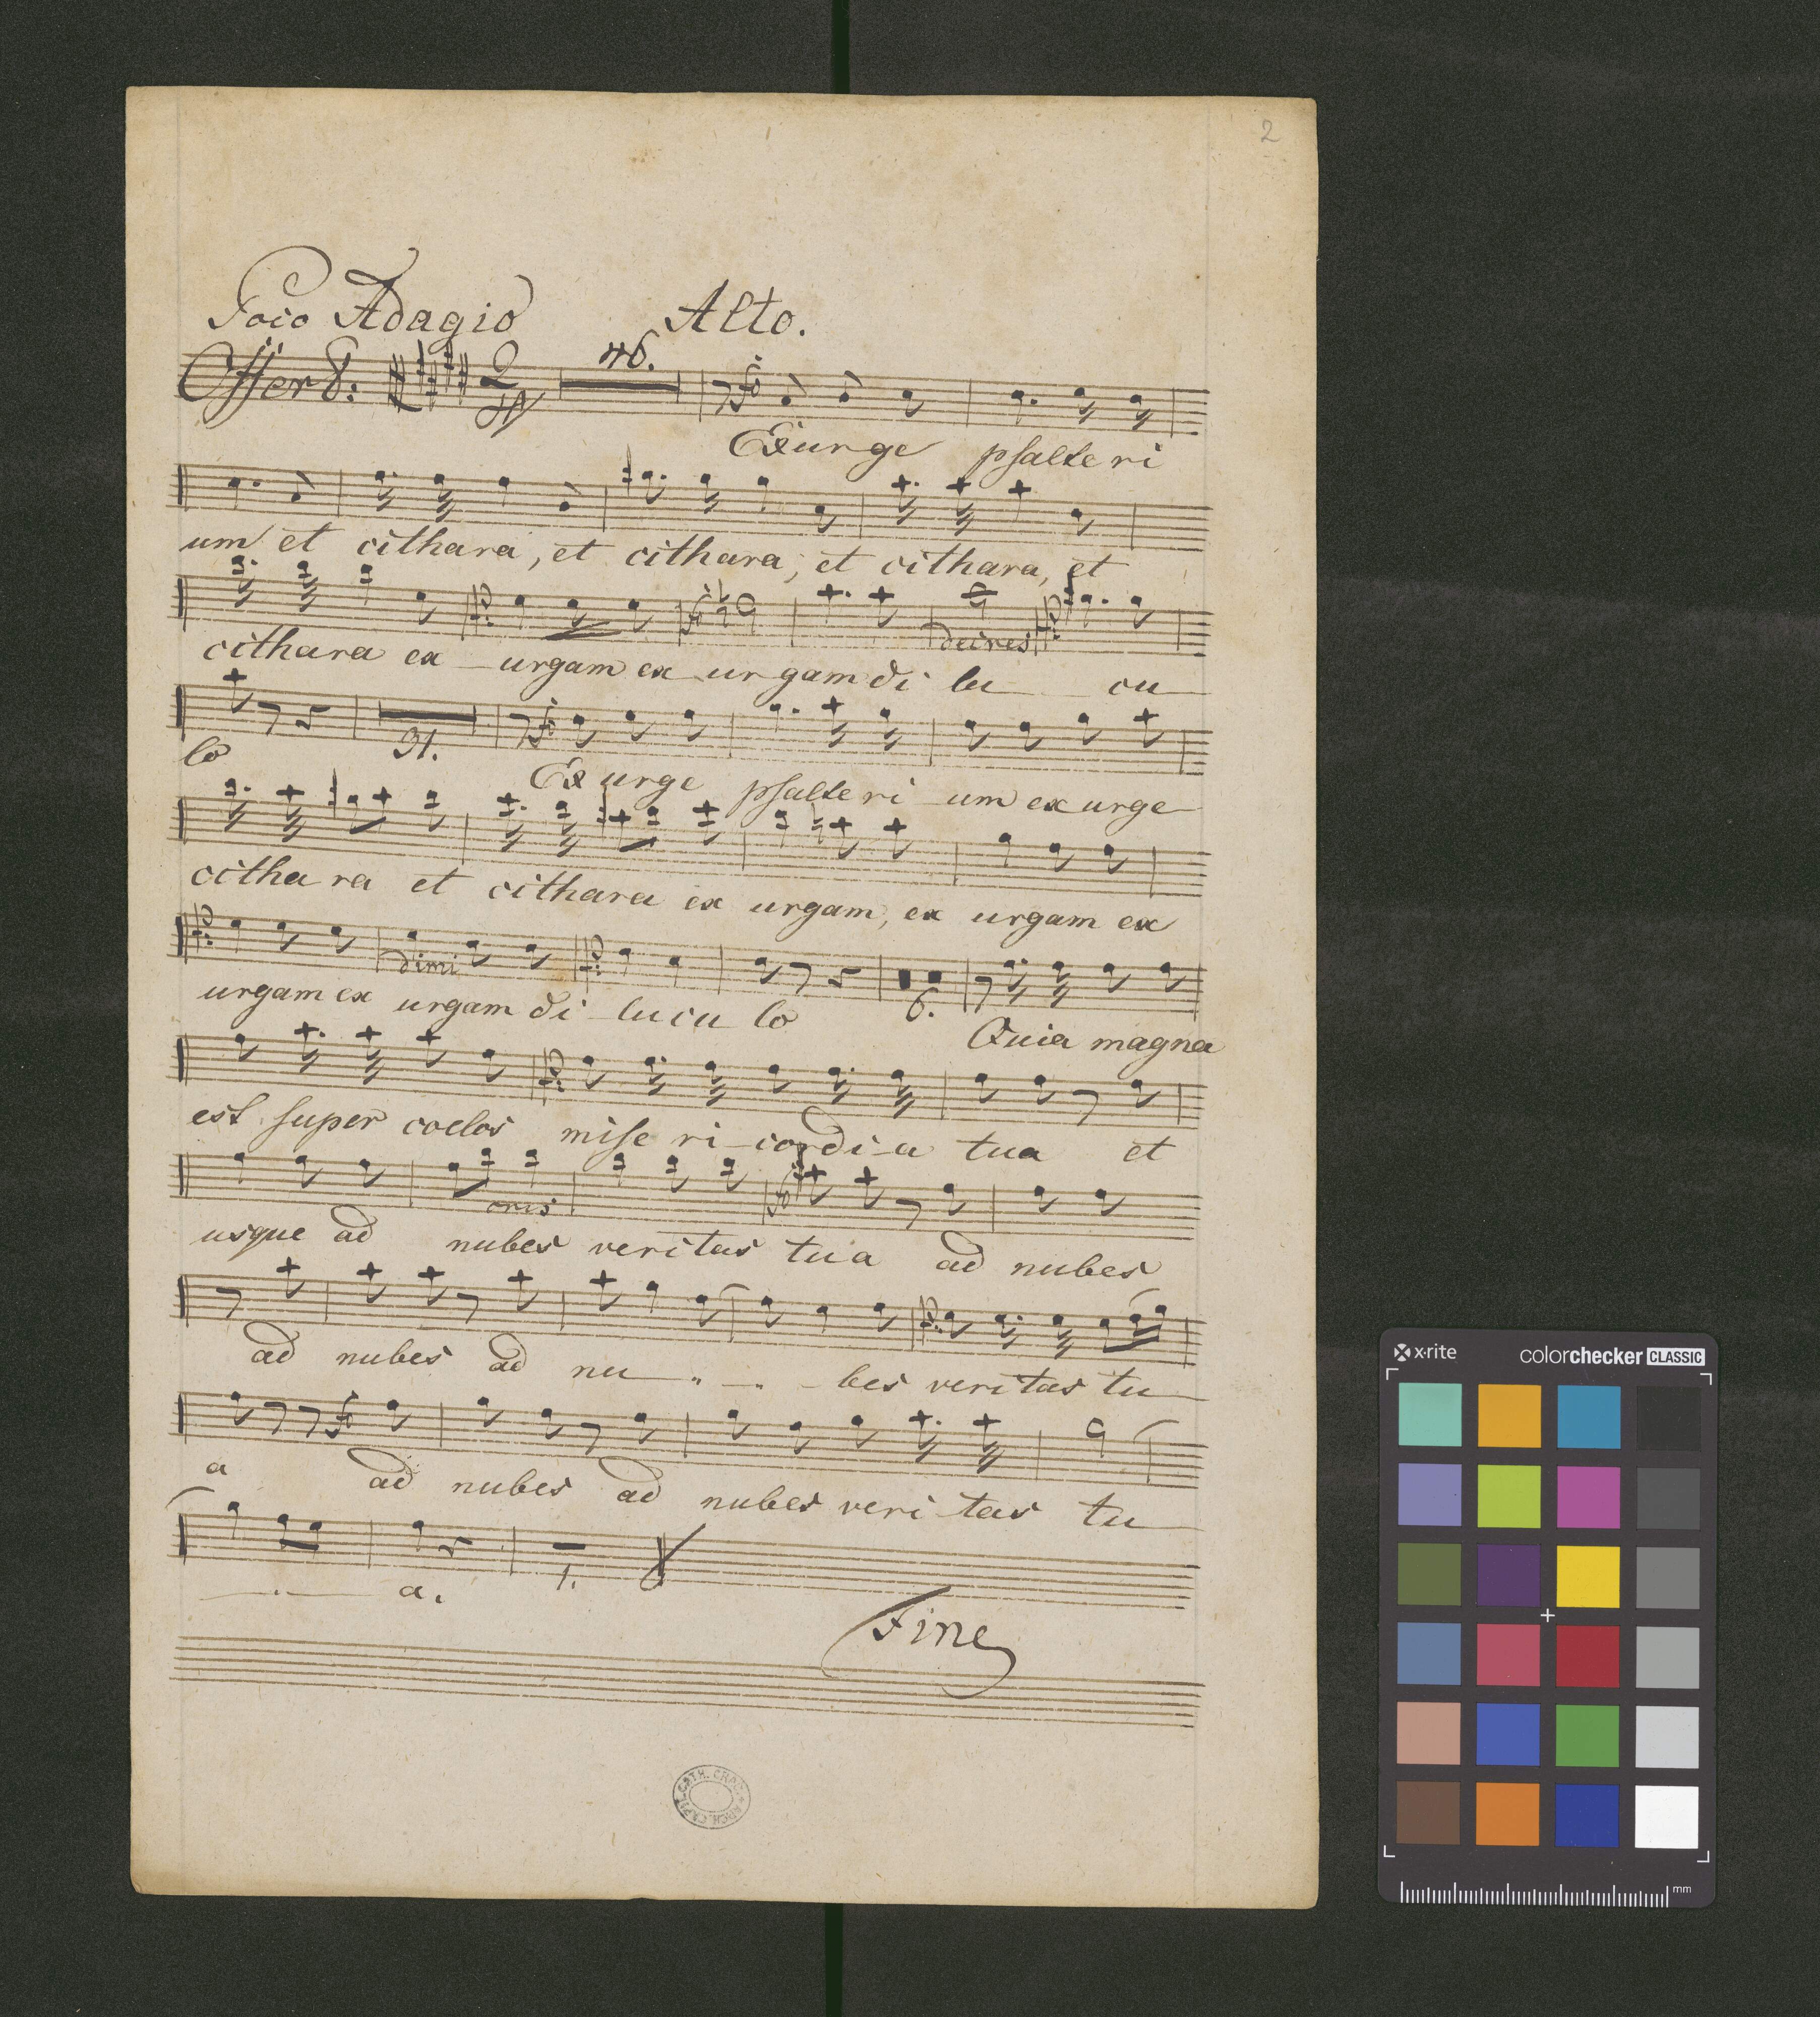 2
Poco Adagio Alto.
Offert: 2/4 46.
Exurge psalte ri
um et cithara, et cithara, et cithara, et
cithara ex urgam ex urgam di lu cu
decres
lo 31. Ex urge psalte ri um ex urge
citha ra et cithara ex urgam, ex urgam ex
dimi 6.
urgam ex urgam di lucu lo Quia magna
est super coelos mise ri cordi a tua et
cres
usque ad nubes veritas tua ad nubes
ad nubes ad nu bes veritas tu
a ad nubes ad nubes veri tas tu
a. 1.
Fine
ARCH. CAPIT. CATH. CRAC.
x-rite colorchecker CLASSIC
mm